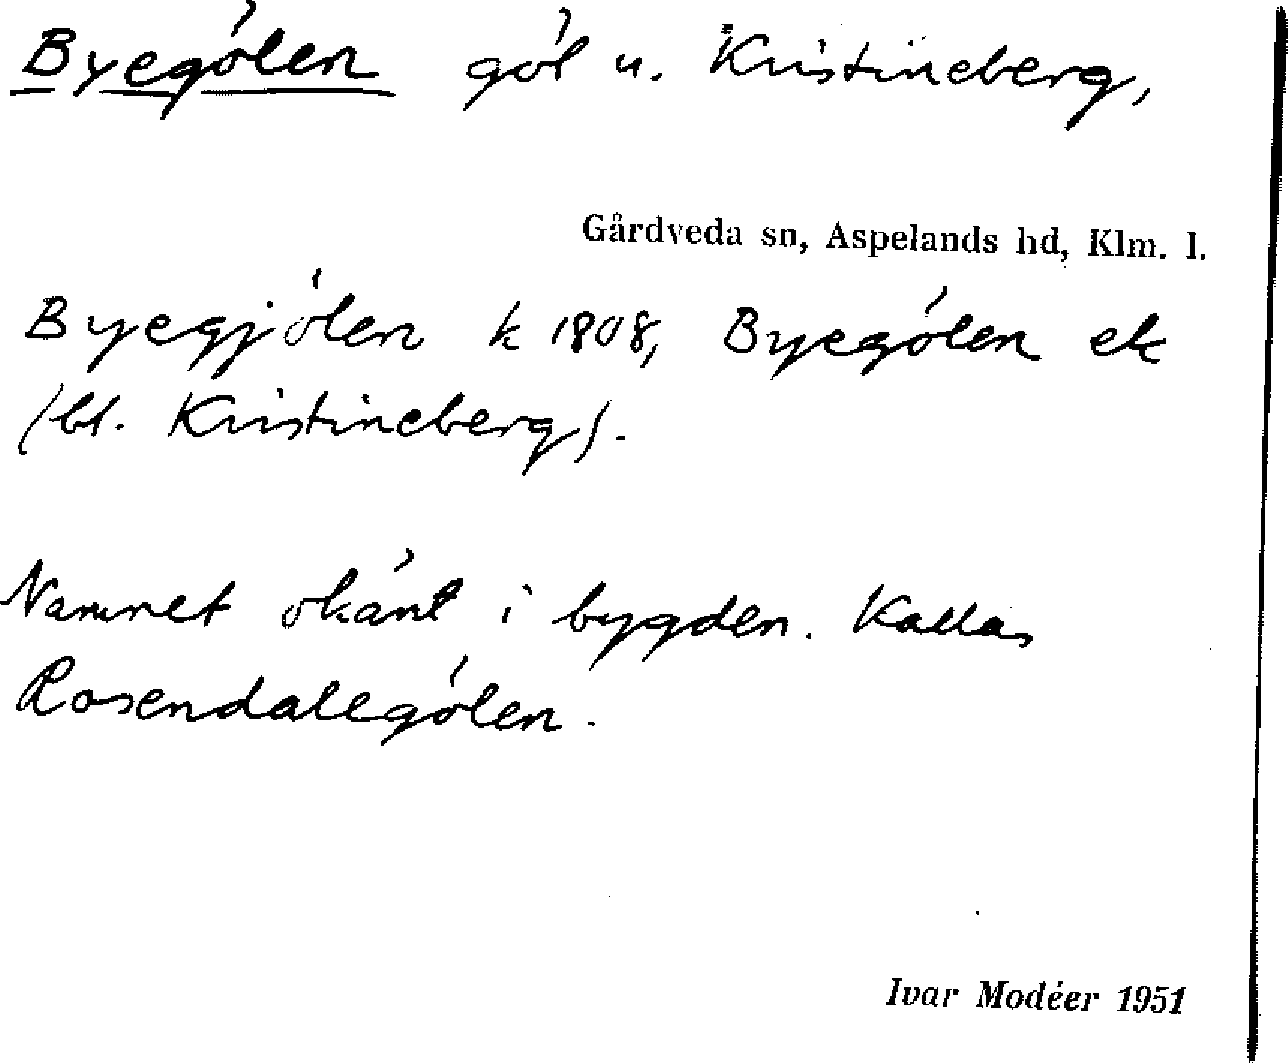 Byegölen göl u. Kristineberg,
Gårdveda sn, Aspelands hd, Klm. l.
Byegjölen k 1808, Byegölen ek
(bl. Kristineberg).
Namnet okänt i bygden. Kallas
Rosendalegölen.
Ivar Modéer 1951